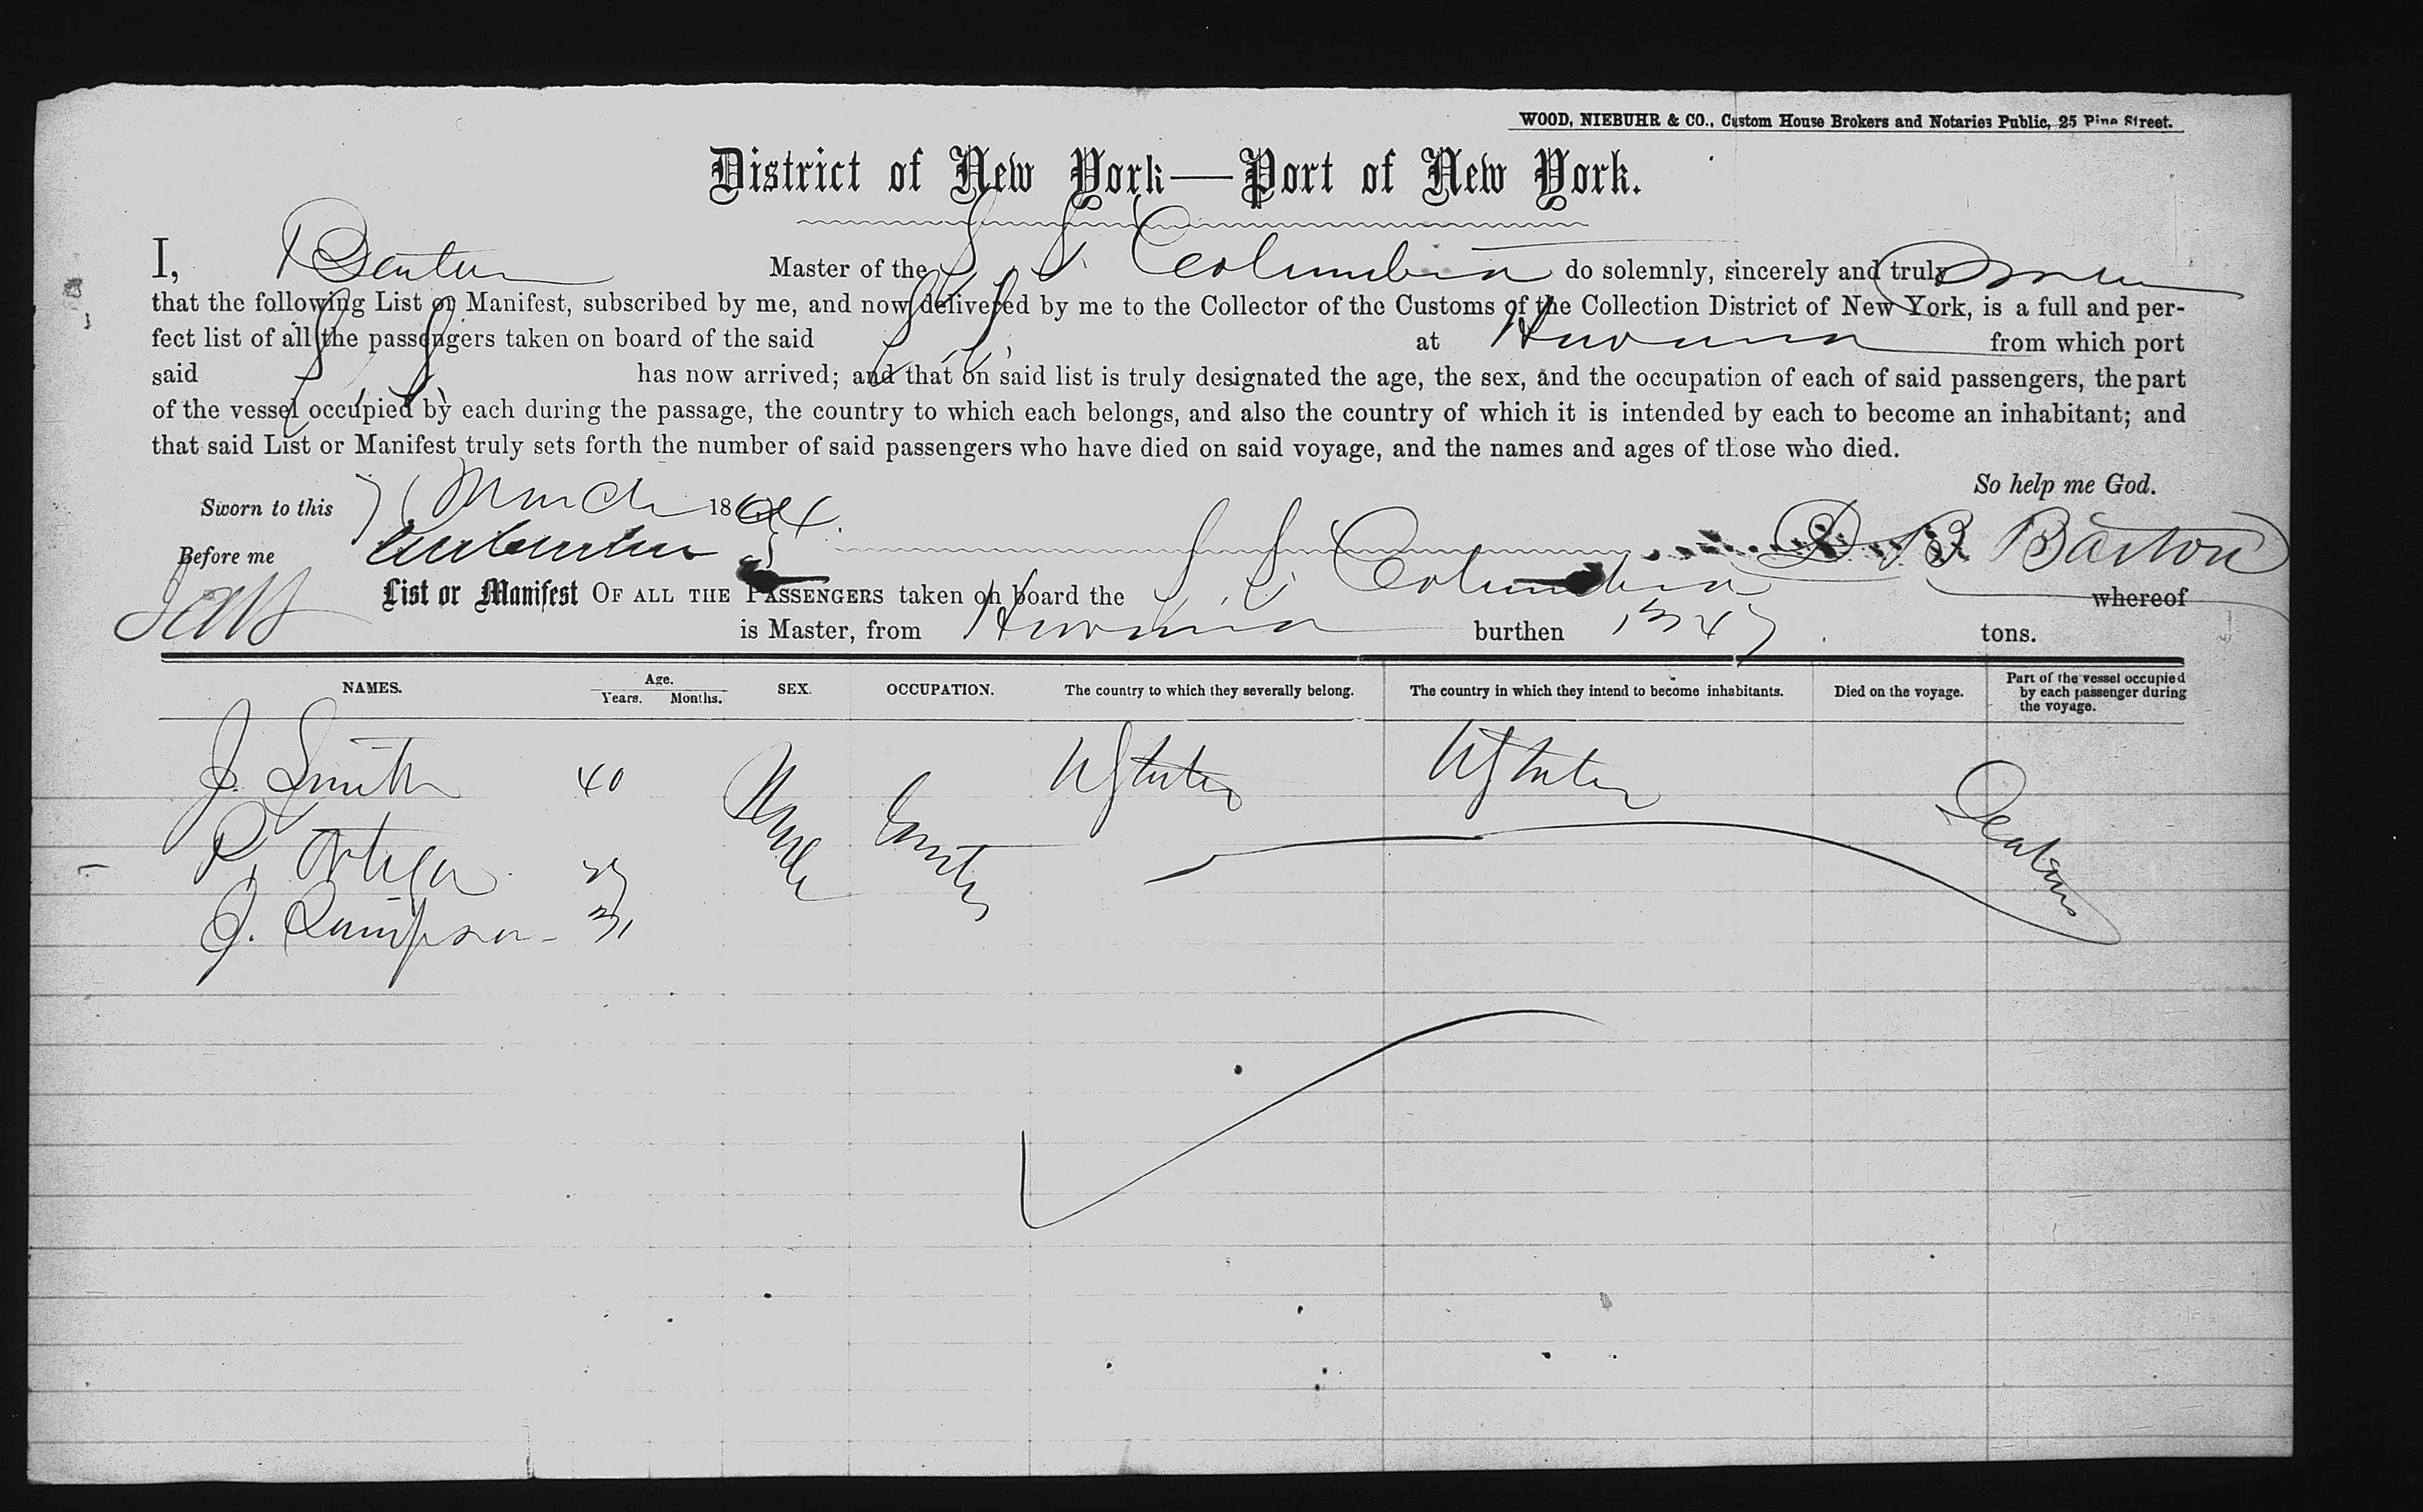 WOOD, NIEBUHR & CO., Custom House Brokers and Notaries Public, 25 Pine Street.
District of New York—Port of New York.
I, Master of the S. S. Columbia do solemnly, sincerely and truly
that the following List or Manifest, subscribed by me, and now delivered by me to the Collector of the Customs of the Collection District of New York, is a full and per-
fect list of all the passengers taken on board of the said S. S. at Havana from which port
said S. S. has now arrived; and that on said list is truly designated the age, the sex, and the occupation of each of said passengers, the part
of the vessel occupied by each during the passage, the country to which each belongs, and also the country of which it is intended by each to become an inhabitant; and
that said List or Manifest truly sets forth the number of said passengers who have died on said voyage, and the names and ages of those who died.
So help me God.
Sworn to this 7 March 1864.
Before me D B Barton
List or Manifest OF ALL THE PASSENGERS taken on board the S. S. Columbia whereof
is Master, from Havana burthen 1347 tons.
NAMES. Age. Years. Months. SEX. OCCUPATION. The country to which they severally belong. The country in which they intend to become inhabitants. Died on the voyage. Part of the vessel occupied by each passenger during the voyage.
J. Smith 40 Male U States U States
P. Ortega
J. Simpson 31